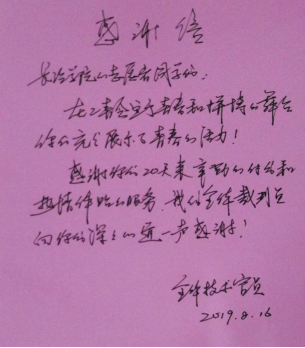 感谢信
长治学院的志愿者同学们:
在二青会这个青春和拼搏的舞台
你们充分展示了青春的活力!
感谢你们20天来辛勤的付出和
热情体贴的服务。我们全体裁判员
向你们深深的道一声感谢!
全体技术官员
2019.8.16